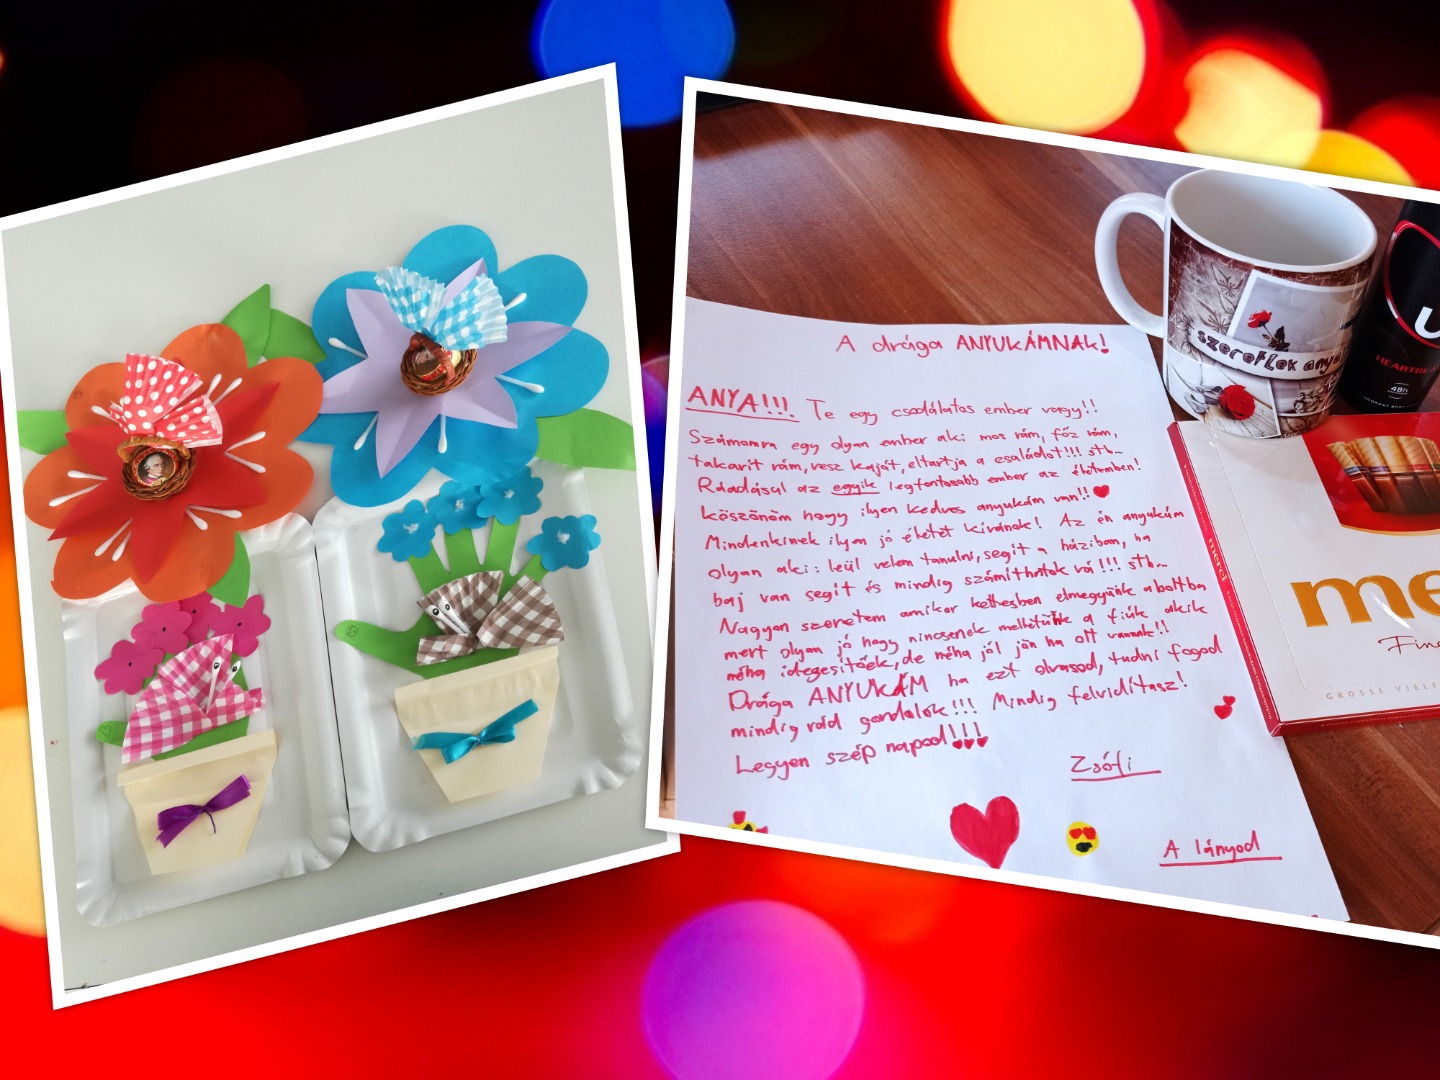 A drága ANYUKÁMNAK!
ANYA!!! Te egy csodálatos ember vagy!!
Számomra egy olyan ember aki: mos rám, főz rám,
takarít rám, vesz kaját, eltartja a családot!!! stb...
Ráadásul az egyik legfontosabb ember az életemben!
köszönöm hogy ilyen kedves anyukám van!!
Mindenkinek ilyen jó életet kívánok! Az én anyukám
olyan aki: leül velem tanulni, segít a háziban, ha
baj van segít és mindig számíthatok rá!!! stb...
Nagyon szeretem amikor kettesben elmegyünk a boltba
mert olyan jó hogy nincsenek mellettünk a fiúk akik
néha idegesítőek, de néha jól jön ha ott vannak!!
Drága ANYUKÁM ha ezt olvasod, tudni fogod
mindig rád gondolok!!! Mindig felvidítasz!
Legyen szép napod!!!
Zsófi
A lányod
szeretlek anyu
HEARTBEA
48h
merci
me
Fine
GROSSE VIELF